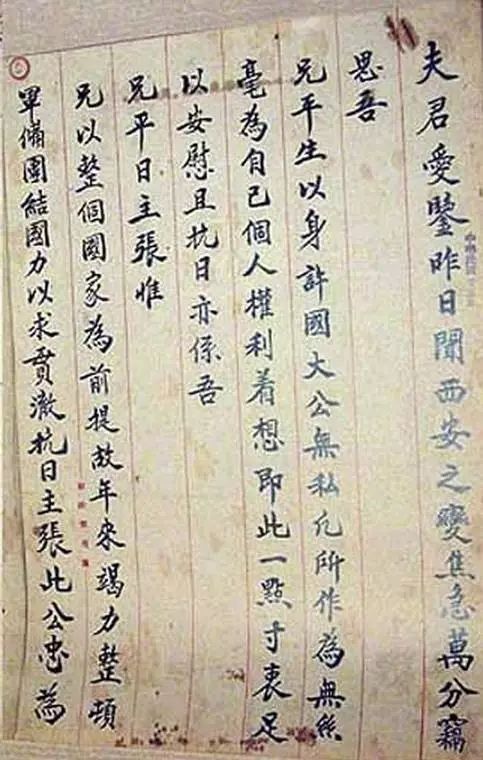 夫君愛鑒昨日聞西安之變焦急萬分竊
思吾
兄平生以身許國大公無私凡所作為無絲
毫為自己個人權利着想即此一點寸衷足
以安慰且抗日亦係吾
兄平日主張惟
兄以整個國家為前提故年來竭力整頓
軍備團結國力以求貫澈抗日主張此公忠為